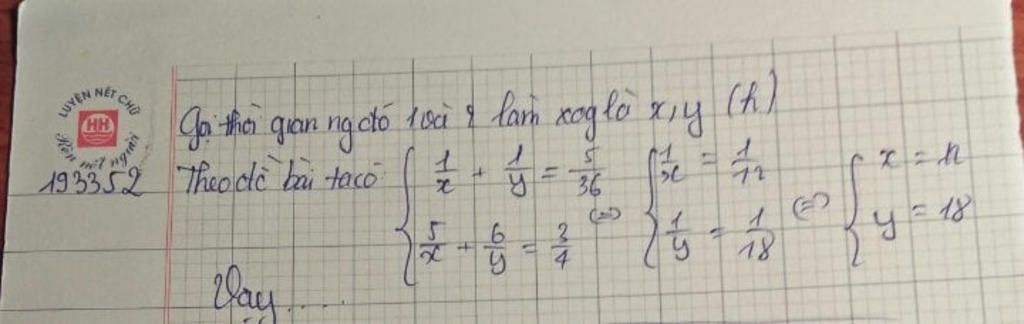 LUYỆN NÉT CHỮ
HH
Rèn nết người
193352
Gọi thời gian ng đó 1 và 2 làm xog là x, y (h)
Theo đề bài ta có: { 1/x + 1/y = 5/36 <=> { 1/x = 1/12 <=> { x = 12
5/x + 6/y = 3/4 1/y = 1/18 y = 18
Vậy ....